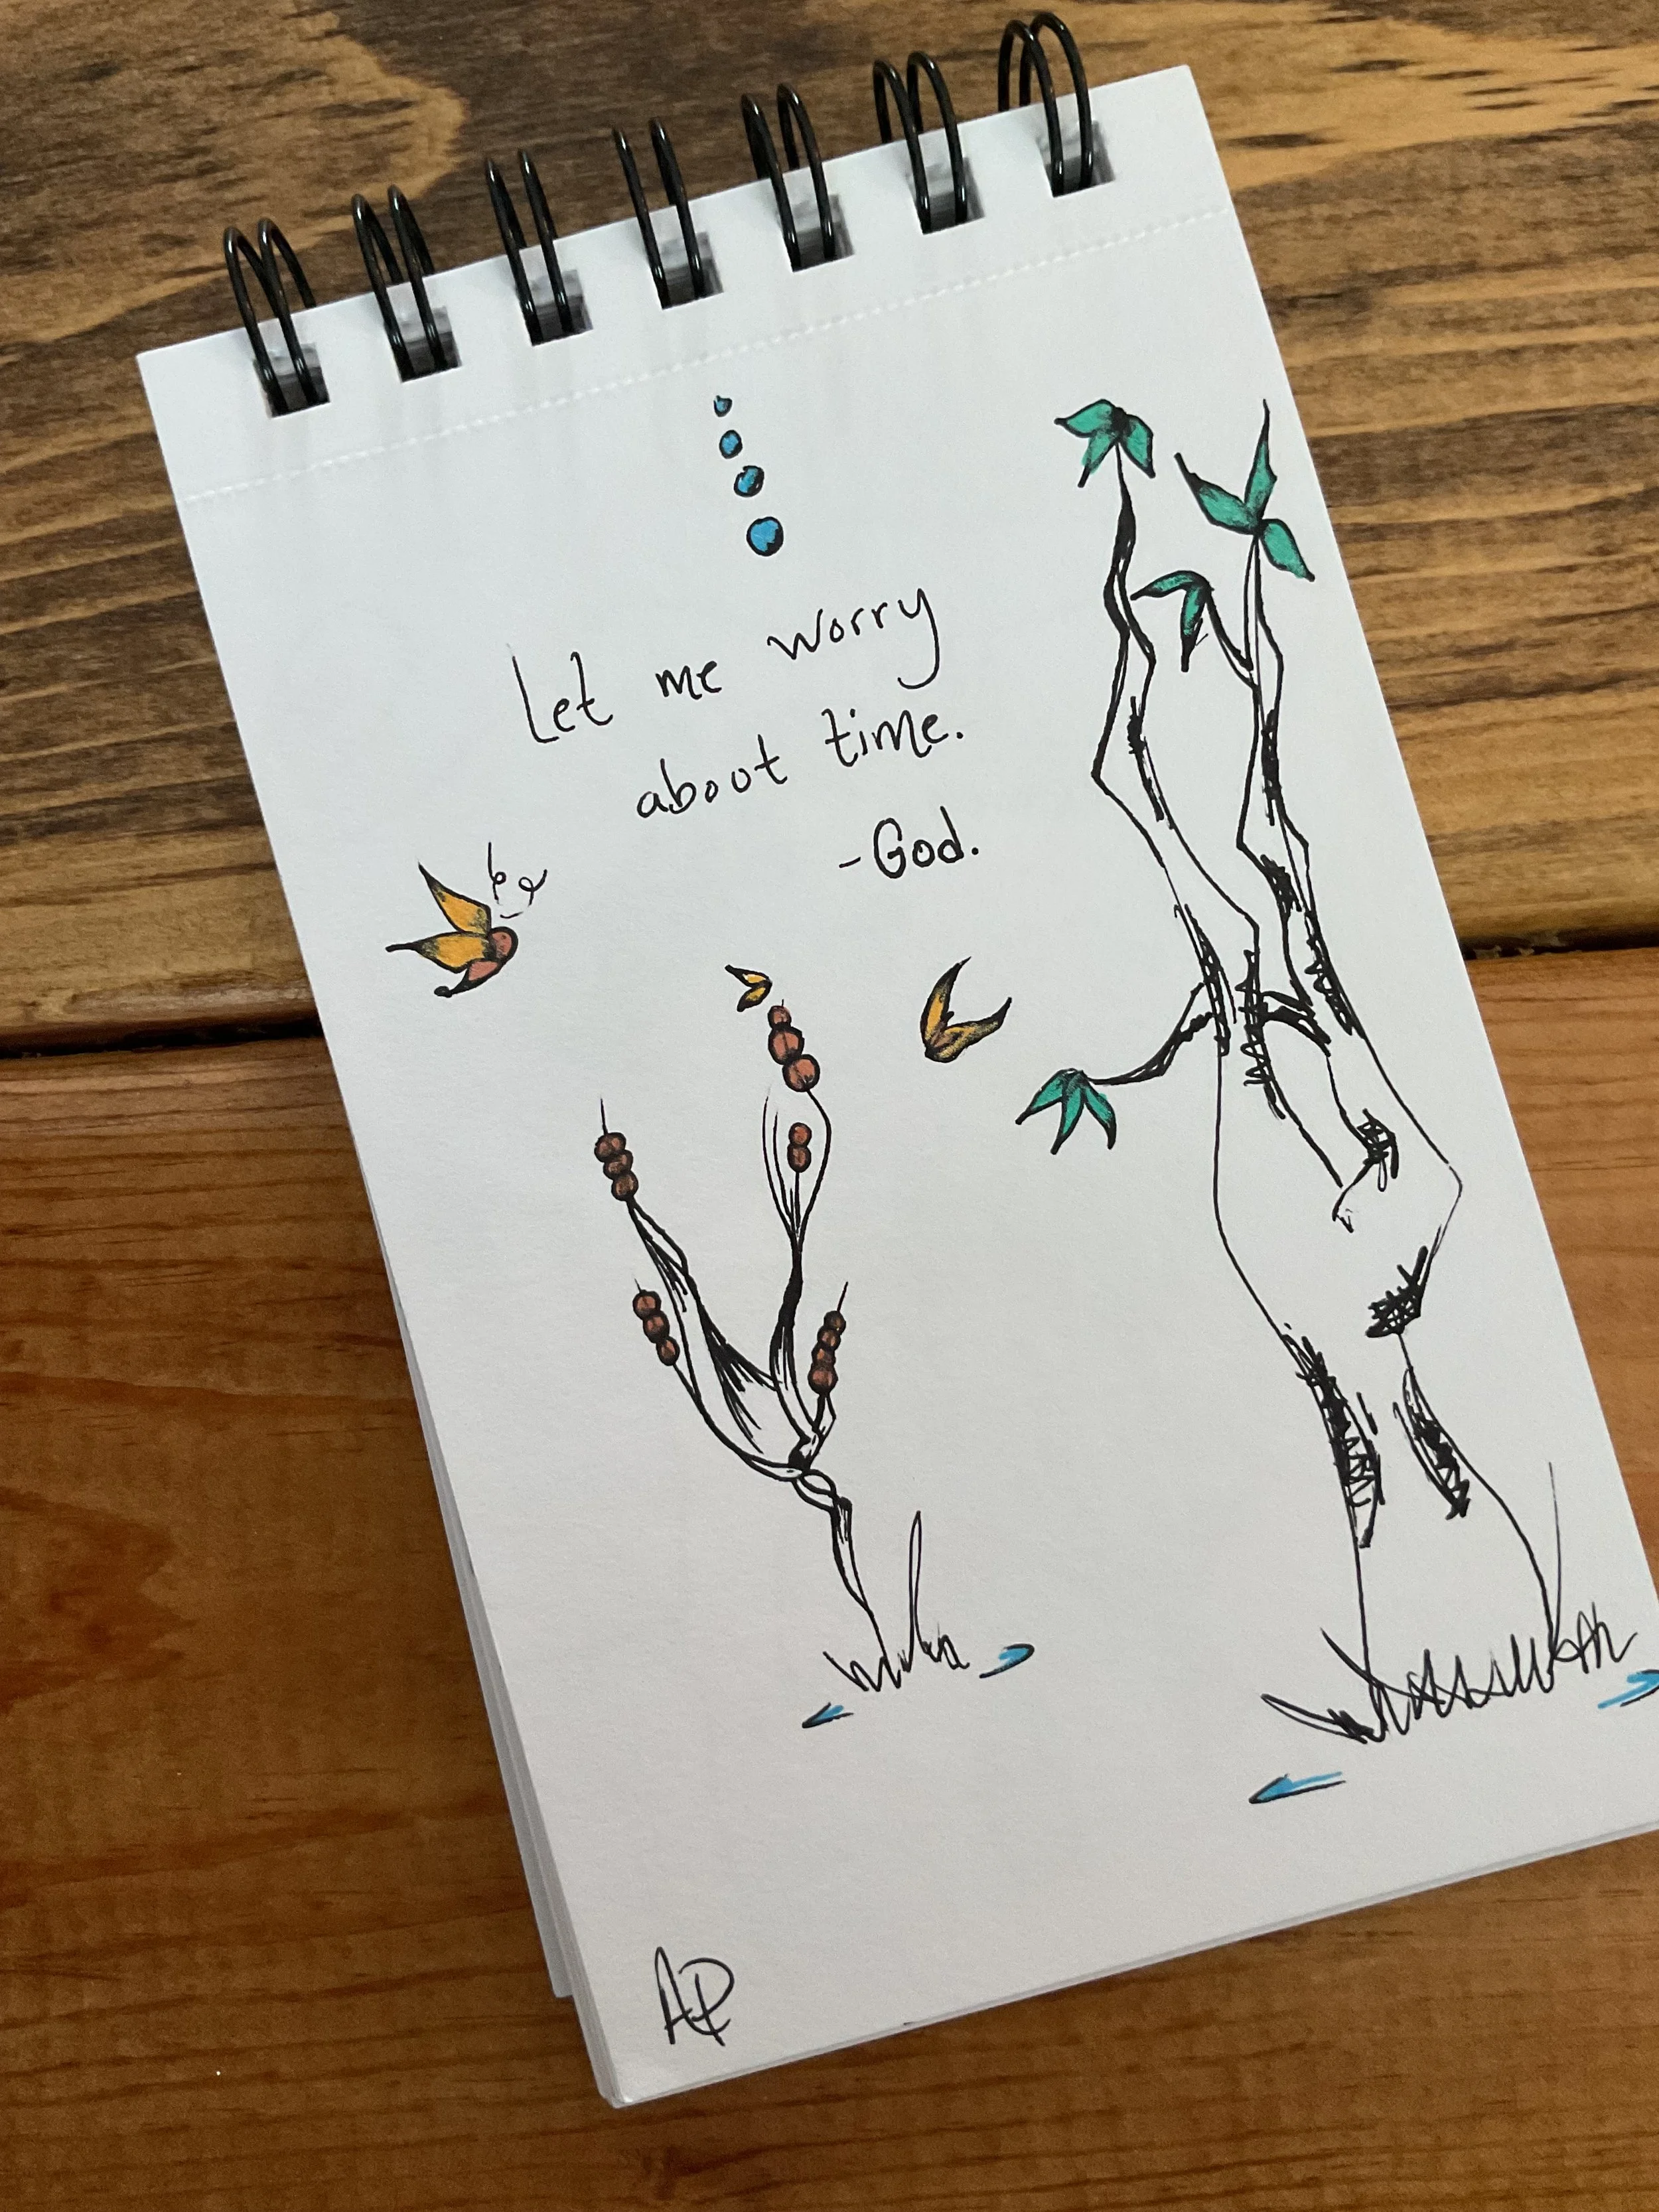 Let me worry
about time.
-God.
AP